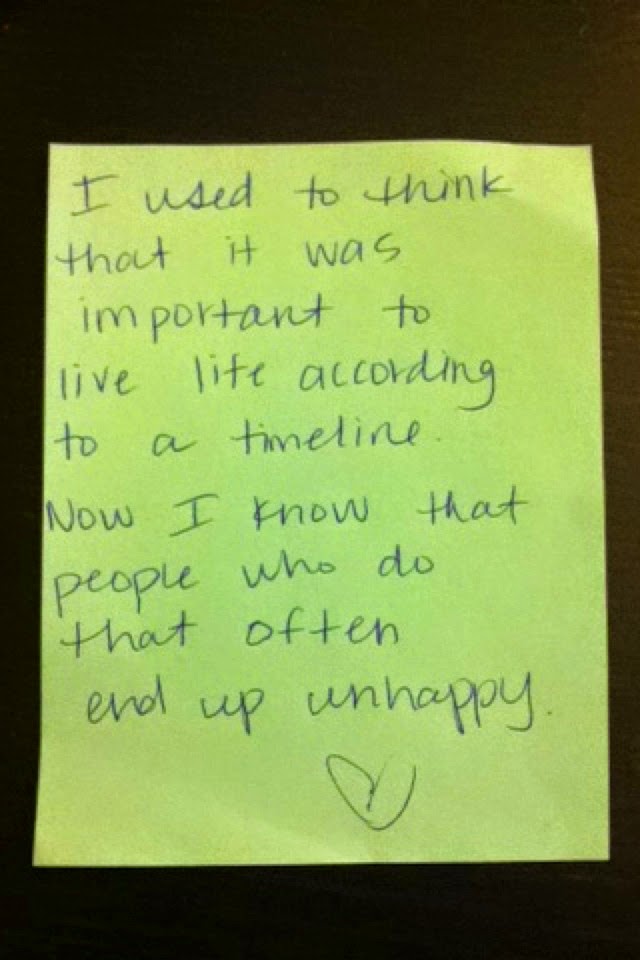 I used to think
that it was
important to
live life according
to a timeline.
Now I know that
people who do
that often
end up unhappy.